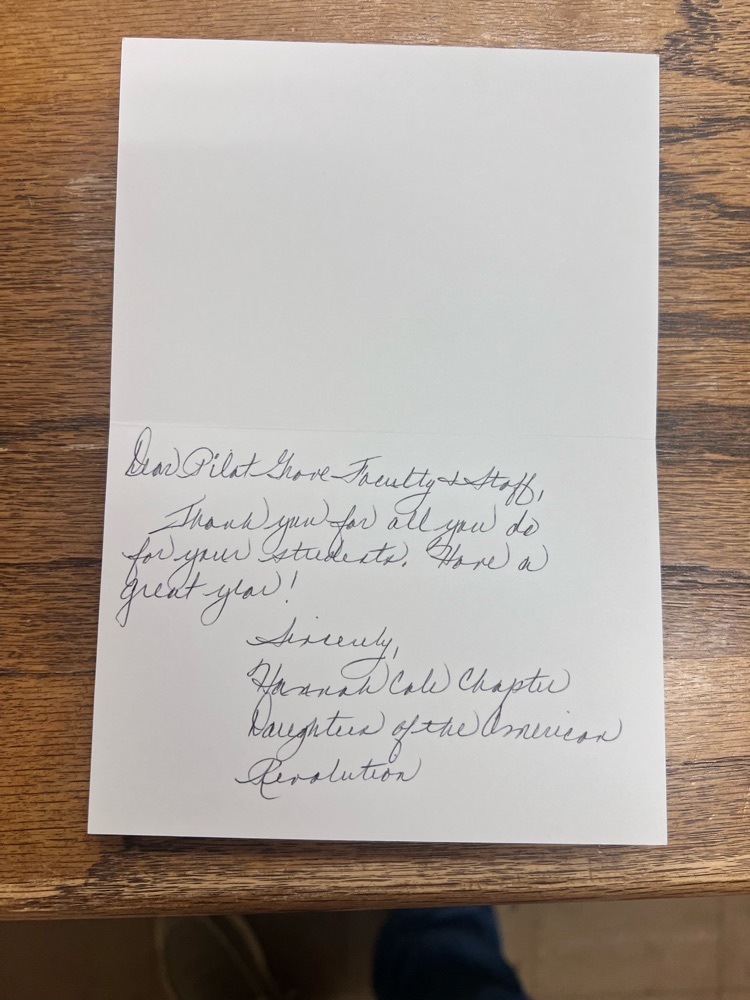 Dear Pilot Grove Faculty & Staff,
Thank you for all you do
for your students. Have a
great year!
Sincerely,
Hannah Cole Chapter
Daughters of the American
Revolution